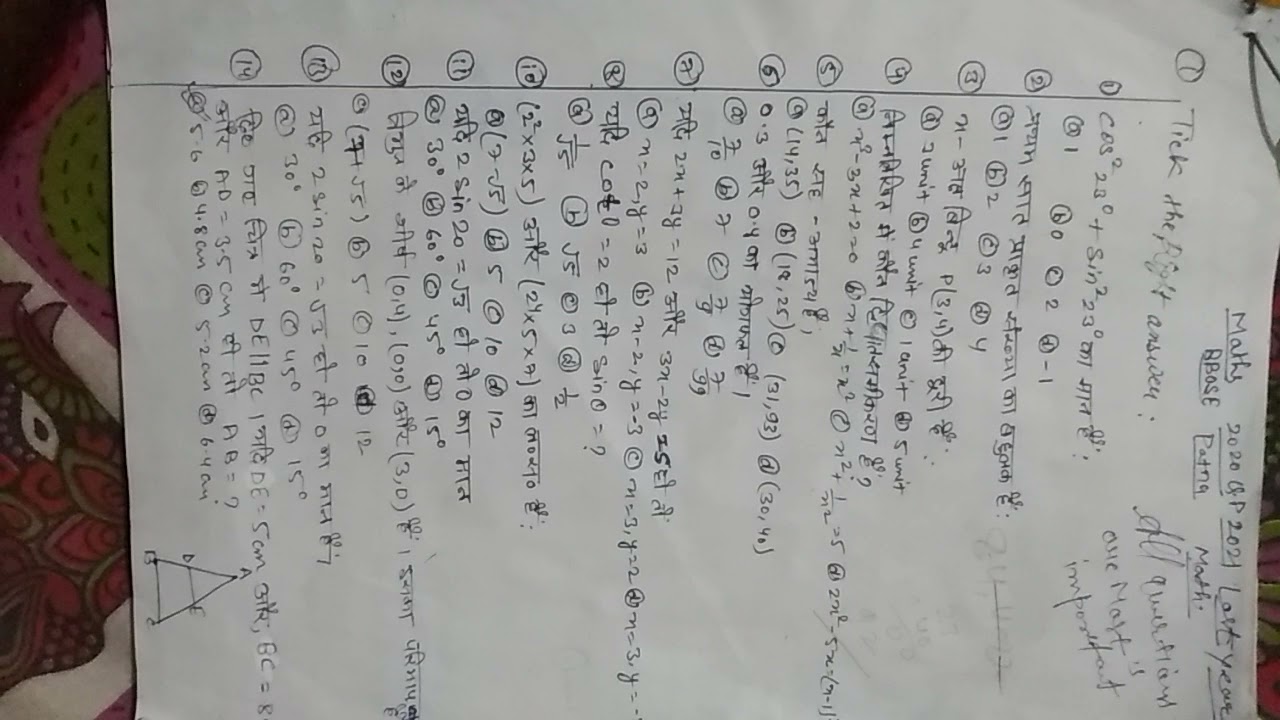 Maths 2020 GP 2021 Last year
BBOSE Patna Math:
All questions
are Most's
important
① Tick the Right answer:
① cos² 23° + sin² 23° का मान है:
ⓐ 1 ⓑ 0 ⓒ 2 ⓓ -1
② प्रथम सात प्राकृत संख्या का बहुलक है:
ⓐ 1 ⓑ 2 ⓒ 3 ⓓ 4
③ x-अक्ष बिन्दु P(3,4) की दूरी है:
ⓐ 3 unit ⓑ 4 unit ⓒ 1 unit ⓓ 5 unit
④ निम्नलिखित में कौन द्विघात समीकरण है?
ⓐ x²-3x+2=0 ⓑ x+1/x=x² ⓒ x²+1/x²=5 ⓓ 2x²-5x=(x-1)²
⑤ कौन सह-अभाज्य है,
ⓐ (14,35) ⓑ (18,25) ⓒ (31,93) ⓓ (30,40)
⑥ 0.3 और 0.4 का योगफल है।
ⓐ 7/10 ⓑ 7 ⓒ 7/9 ⓓ 7/99
⑦ यदि 2x+3y=12 और 3x-2y=5 हो तो
ⓐ x=2,y=3 ⓑ x=2,y=-3 ⓒ x=3,y=2 ⓓ x=3,y=-
यदि cotθ=2 हो तो sinθ=?
ⓐ 1/√5 ⓑ √5 ⓒ 3 ⓓ 1/2
⑩ (2²×3×5) और (2⁴×5×7) का ल०स० है:
ⓐ (7-√5) ⓑ 5 ⓒ 10 ⓓ 12
⑪ यदि 2 sin 2θ=√3 हो तो θ का मान
ⓐ 30° ⓑ 60° ⓒ 45° ⓓ 15°
⑫ त्रिभुज के शीर्ष (0,4), (0,0) और (3,0) हैं। इसका परिमाप है
ⓐ (7-√5) ⓑ 5 ⓒ 10 ⓓ 12
⑬ यदि 2 sin 2θ=√3 हो तो θ का मान है।
ⓐ 30° ⓑ 60° ⓒ 45° ⓓ 15°
⑭ दिए गए चित्र में DE||BC । यदि DE=5cm और, BC=8
और AD=3.5 cm हो तो AB=?
ⓐ 5.6 ⓑ 4.8cm ⓒ 5.2cm ⓓ 6.4cm
A
D E
B C